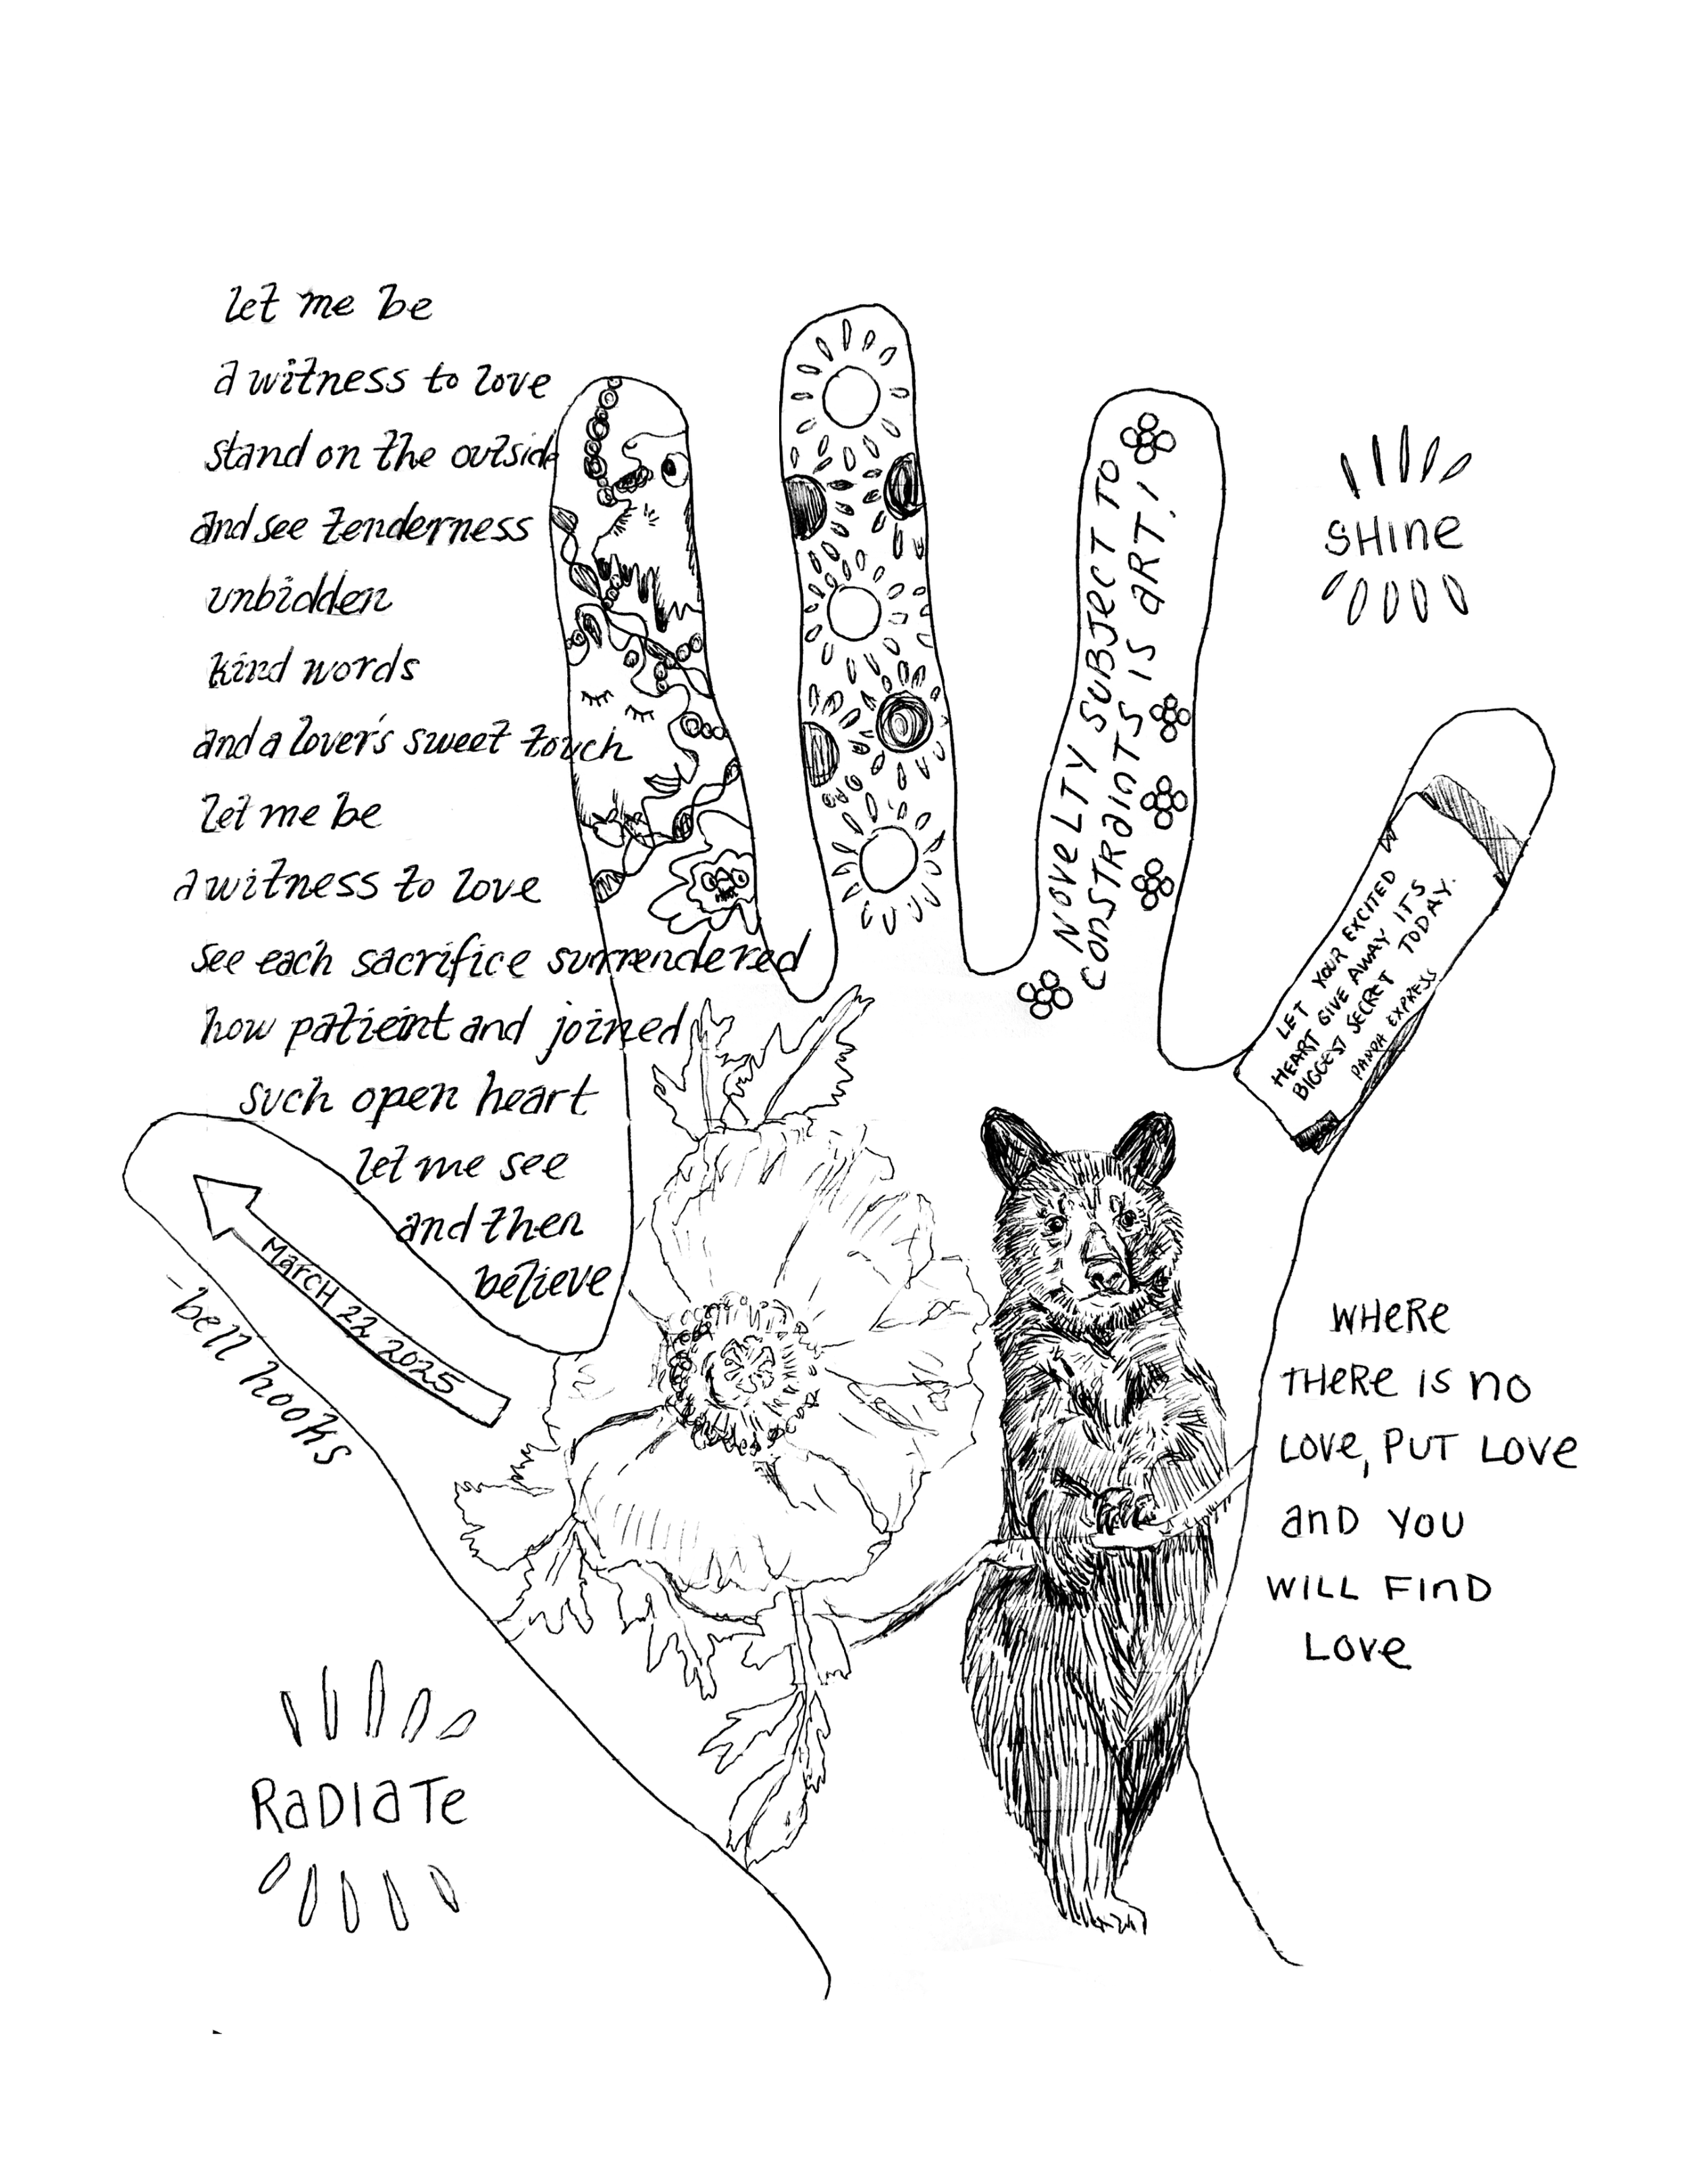 let me be
a witness to love
stand on the outside
and see tenderness
unbidden
kind words
and a lover's sweet touch
let me be
a witness to love
see each sacrifice surrendered
how patieint and joined
such open heart
let me see
and then
believe
-bell hooks
MaRCH 22, 2025
NOVeLTY SUBJecT TO
consTRainTS IS aRT!
SHIne
LET YOUR EXCITED
HEART GIVE AWAY IT'S
BIGGEST SECRET TODAY.
PANDA EXPRESS
WHeRe
THeRe IS no
Love, PUT Love
anD YOU
WILL FinD
Love
RaDIaTe